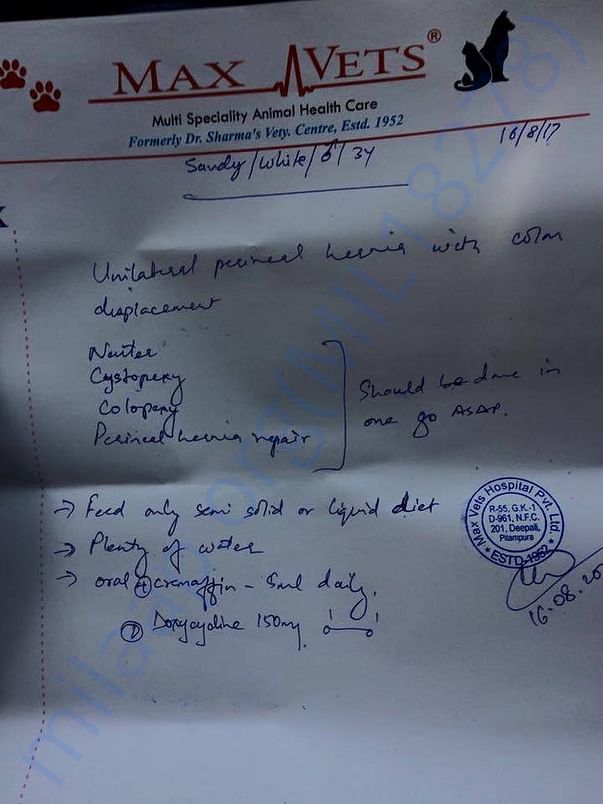 MAX VETS®
Multi Speciality Animal Health Care
Formerly Dr. Sharma's Vety. Centre, Estd. 1952
16/8/17
Sandy/White/♂/3Y
Unilateral perineal hernia with colon
displacement
Neuter
Cystopexy
Colopexy
Perineal hernia repair
Should be done in
one go ASAP.
→ Feed only semi solid or liquid diet
→ Plenty of water
→ oral ① cremaffin - 5ml daily.
② Doxycycline 150mg 1 1
Max Vets Hospital Pvt. Ltd.
R-55, G.K-1
D-961, N.F.C.
201, Deepali,
Pitampura
★ ESTD-1952 ★
16.08.20
milaap.org(MIL 18278)